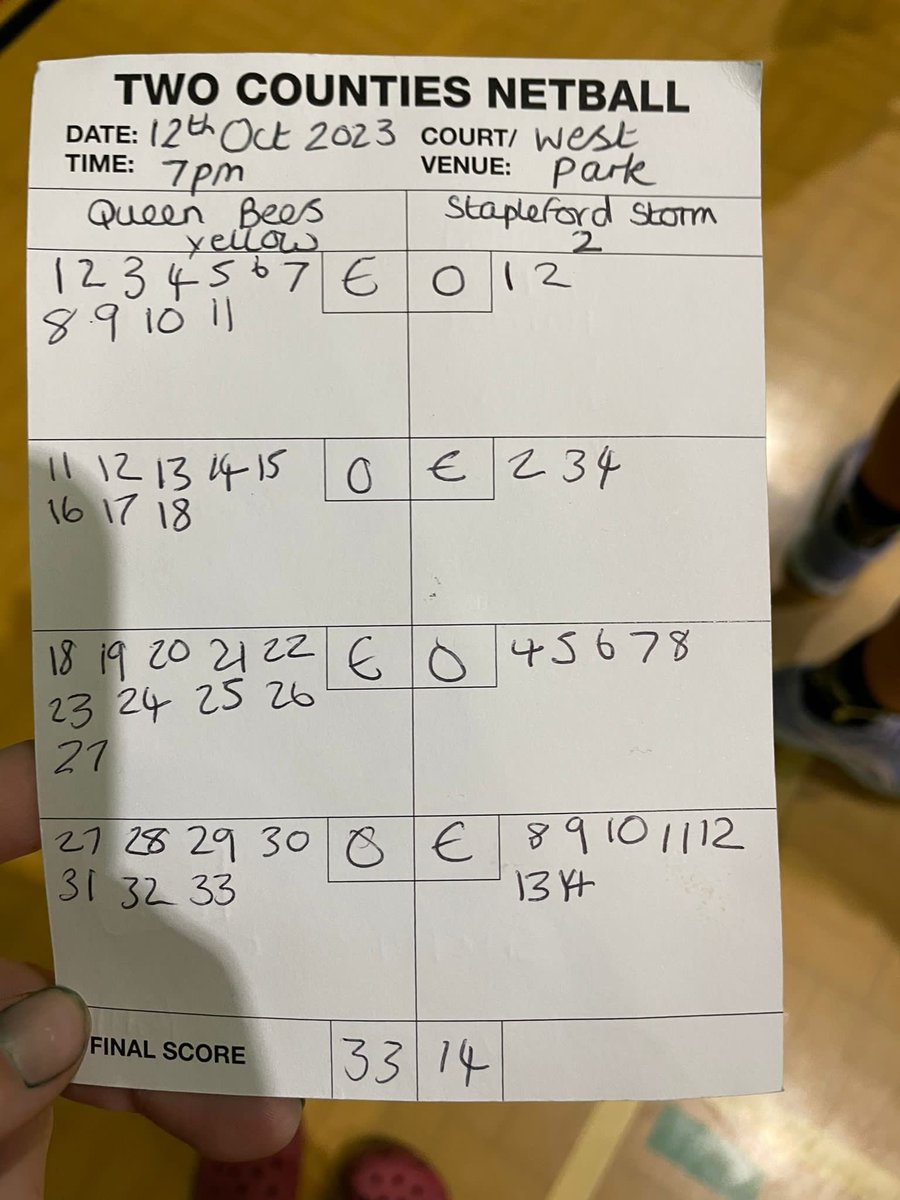 TWO COUNTIES NETBALL
DATE: 12th Oct 2023 COURT/ West
TIME: 7pm VENUE: Park
Queen Bees Stapleford Storm
yellow 2
1 2 3 4 5 6 7 € O 1 2
8 9 10 11
11 12 13 14 15 O € 2 3 4
16 17 18
18 19 20 21 22 € O 4 5 6 7 8
23 24 25 26
27
27 28 29 30 O € 8 9 10 11 12
31 32 33 13 14
FINAL SCORE 33 14